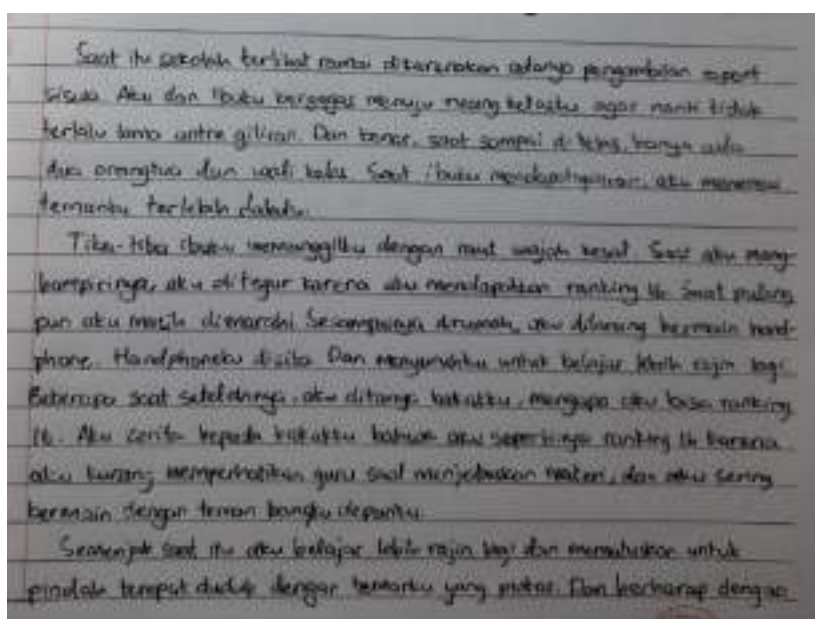 Saat itu sekolah terlihat ramai dikarenakan adanya pengambilan raport
siswa. Aku dan ibuku bergegas menuju ruang kelasku agar nanti tidak
terlalu lama antre giliran. Dan benar, saat sampai di kelas, hanya ada
dua orangtua dan wali kelas. Saat ibuku mendapat giliran, aku menemui
temanku terlebih dahulu.
Tiba-tiba ibuku memanggilku dengan raut wajah kesal. Saat aku meng-
hampirinya, aku ditegur karena aku mendapatkan ranking 16. Saat pulang
pun aku masih dimarahi. Sesampainya dirumah, aku dilarang bermain hand-
phone. Handphoneku disita. Dan menyuruhku untuk belajar lebih rajin lagi.
Beberapa saat setelahnya, aku ditanya kakakku, mengapa aku bisa ranking
16. Aku cerita kepada kakakku bahwa aku sepertinya ranking 16 karena
aku kurang memperhatikan guru saat menjelaskan materi, dan aku sering
bermain dengan teman bangku depanku.
Semenjak saat itu aku belajar lebih rajin lagi dan memutuskan untuk
pindah tempat duduk dengan temanku yang pintar. Dan berharap dengan